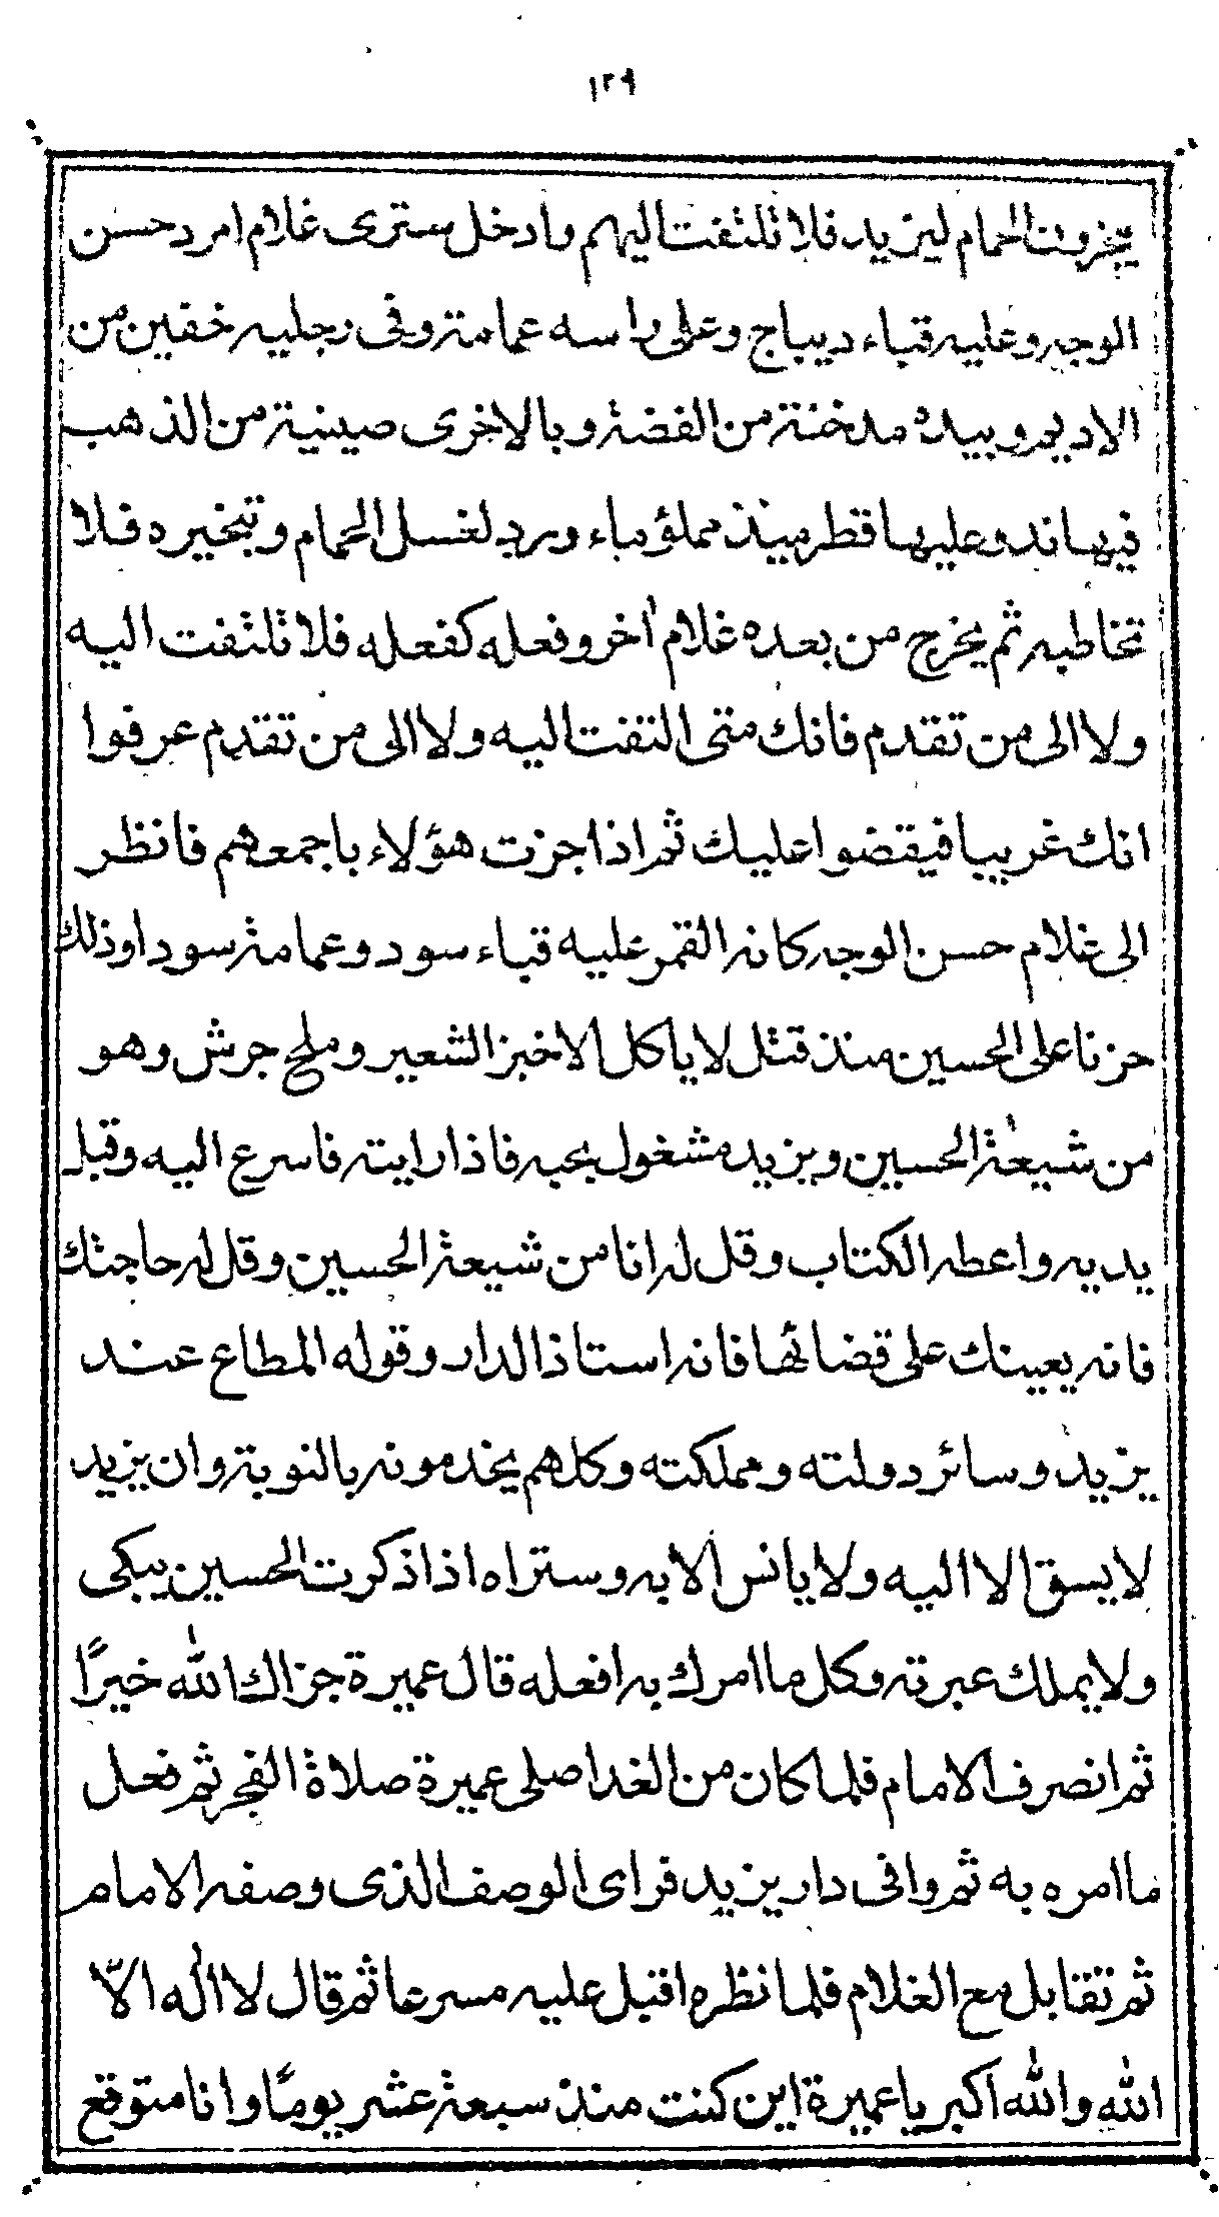 ١٢٩
يبخرون الحمام ليزيد فلا تلتفت اليهم وادخل سترى غلام امرد حسن
الوجه وعليه قباء ديباج وعلى راسه عمامة وفى رجليه خفين من
الاديم وبيده مدخنة من الفضة وبالاخرى صينية من الذهب
فيها ند وعليها قطرميذ مملؤ ماء ورد لغسل الحمام وتبخيره فلا
تخاطبه ثم يخرج من بعده غلام اخر وفعله كفعله فلا تلتفت اليه
ولا الى من تقدم فانك متى التفت اليه ولا الى من تقدم عرفوا
انك غريبا فيقضوا عليك ثم اذا جزت هؤلاء باجمعهم فانظر
الى غلام حسن الوجه كانه القمر عليه قباء سود وعمامة سودا وذلك
حزنا على الحسين منذ قتل لا ياكل الا خبز الشعير وملح جرش وهو
من شيعة الحسين ويزيد مشغول بحبه فاذا رايته فاسرع اليه وقبل
يديه واعطه الكتاب وقل له انا من شيعة الحسين وقل له حاجتك
فانه يعينك على قضائها فانه استاذ الدار وقوله المطاع عند
يزيد وسائر دولته ومملكته وكلهم يخدمونه بالنوبة وان يزيد
لا يسق الا اليه ولا يانس الا به وستراه اذا ذكرت الحسين يبكى
ولا يملك عبرته وكل ما امرك به افعله قال عميرة جزاك الله خيرًا
ثم انصرف الامام فلما كان من الغد اصلى عميرة صلاة الفجر ثم فعل
ما امره به ثم وافى دار يزيد فراى الوصف الذى وصفه الامام
ثم تقابل مع الغلام فلما نظره اقبل عليه مسرعا ثم قال لا اله الّا
الله والله اكبر يا عميرة اين كنت منذ سبعة عشر يومًا وانا متوقع